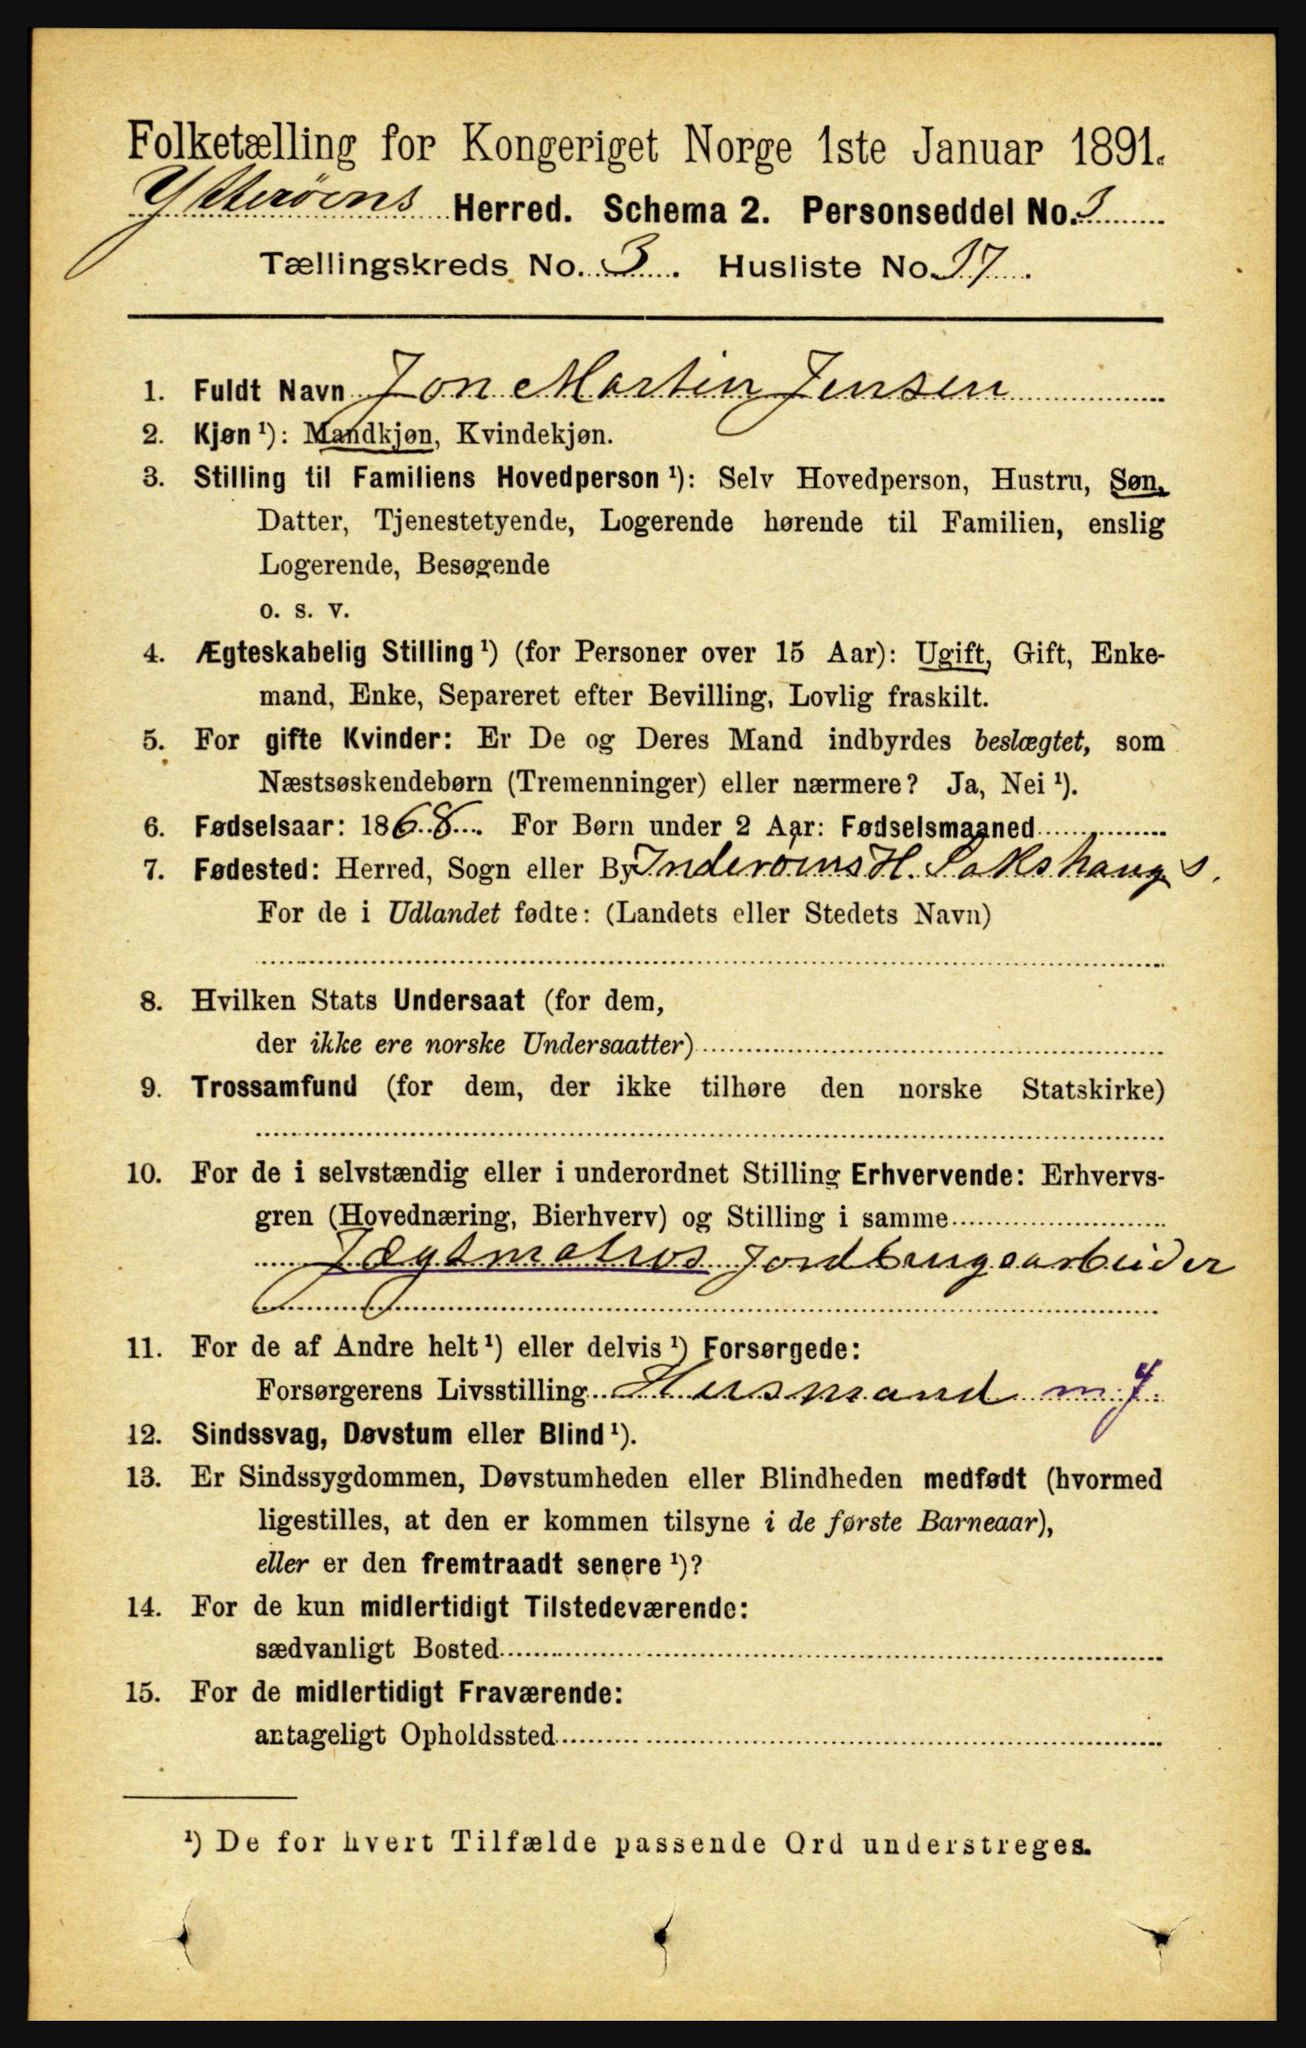 Folketælling for Kongeriget Norge 1ste Januar 1891.
Ytterøens Herred. Schema 2. Personseddel No. 3
Tællingskreds No. 3. Husliste No. 37.
1. Fuldt Navn Jon Martin Jensen
2. Kjøn ¹): Mandkjøn, Kvindekjøn.
3. Stilling til Familiens Hovedperson ¹): Selv Hovedperson, Hustru, Søn,
Datter, Tjenestetyende, Logerende hørende til Familien, enslig
Logerende, Besøgende
o. s. v.
4. Ægteskabelig Stilling ¹) (for Personer over 15 Aar): Ugift, Gift, Enke-
mand, Enke, Separeret efter Bevilling, Lovlig fraskilt.
5. For gifte Kvinder: Er De og Deres Mand indbyrdes beslægtet, som
Næstsøskendebørn (Tremenninger) eller nærmere? Ja, Nei ¹).
6. Fødselsaar: 1868. For Børn under 2 Aar: Fødselsmaaned
7. Fødested: Herred, Sogn eller By Inderøens H. Sakshaug S.
For de i Udlandet fødte: (Landets eller Stedets Navn)
8. Hvilken Stats Undersaat (for dem,
der ikke ere norske Undersaatter)
9. Trossamfund (for dem, der ikke tilhøre den norske Statskirke)
10. For de i selvstændig eller i underordnet Stilling Erhvervende: Erhvervs-
gren (Hovednæring, Bierhverv) og Stilling i samme
Jægtmatros Jordbrugsarbeider
11. For de af Andre helt ¹) eller delvis ¹) Forsørgede:
Forsørgerens Livsstilling Husmand m. J.
12. Sindssvag, Døvstum eller Blind ¹).
13. Er Sindssygdommen, Døvstumheden eller Blindheden medfødt (hvormed
ligestilles, at den er kommen tilsyne i de første Barneaar),
eller er den fremtraadt senere ¹)?
14. For de kun midlertidigt Tilstedeværende:
sædvanligt Bosted
15. For de midlertidigt Fraværende:
antageligt Opholdssted
¹) De for hvert Tilfælde passende Ord understreges.